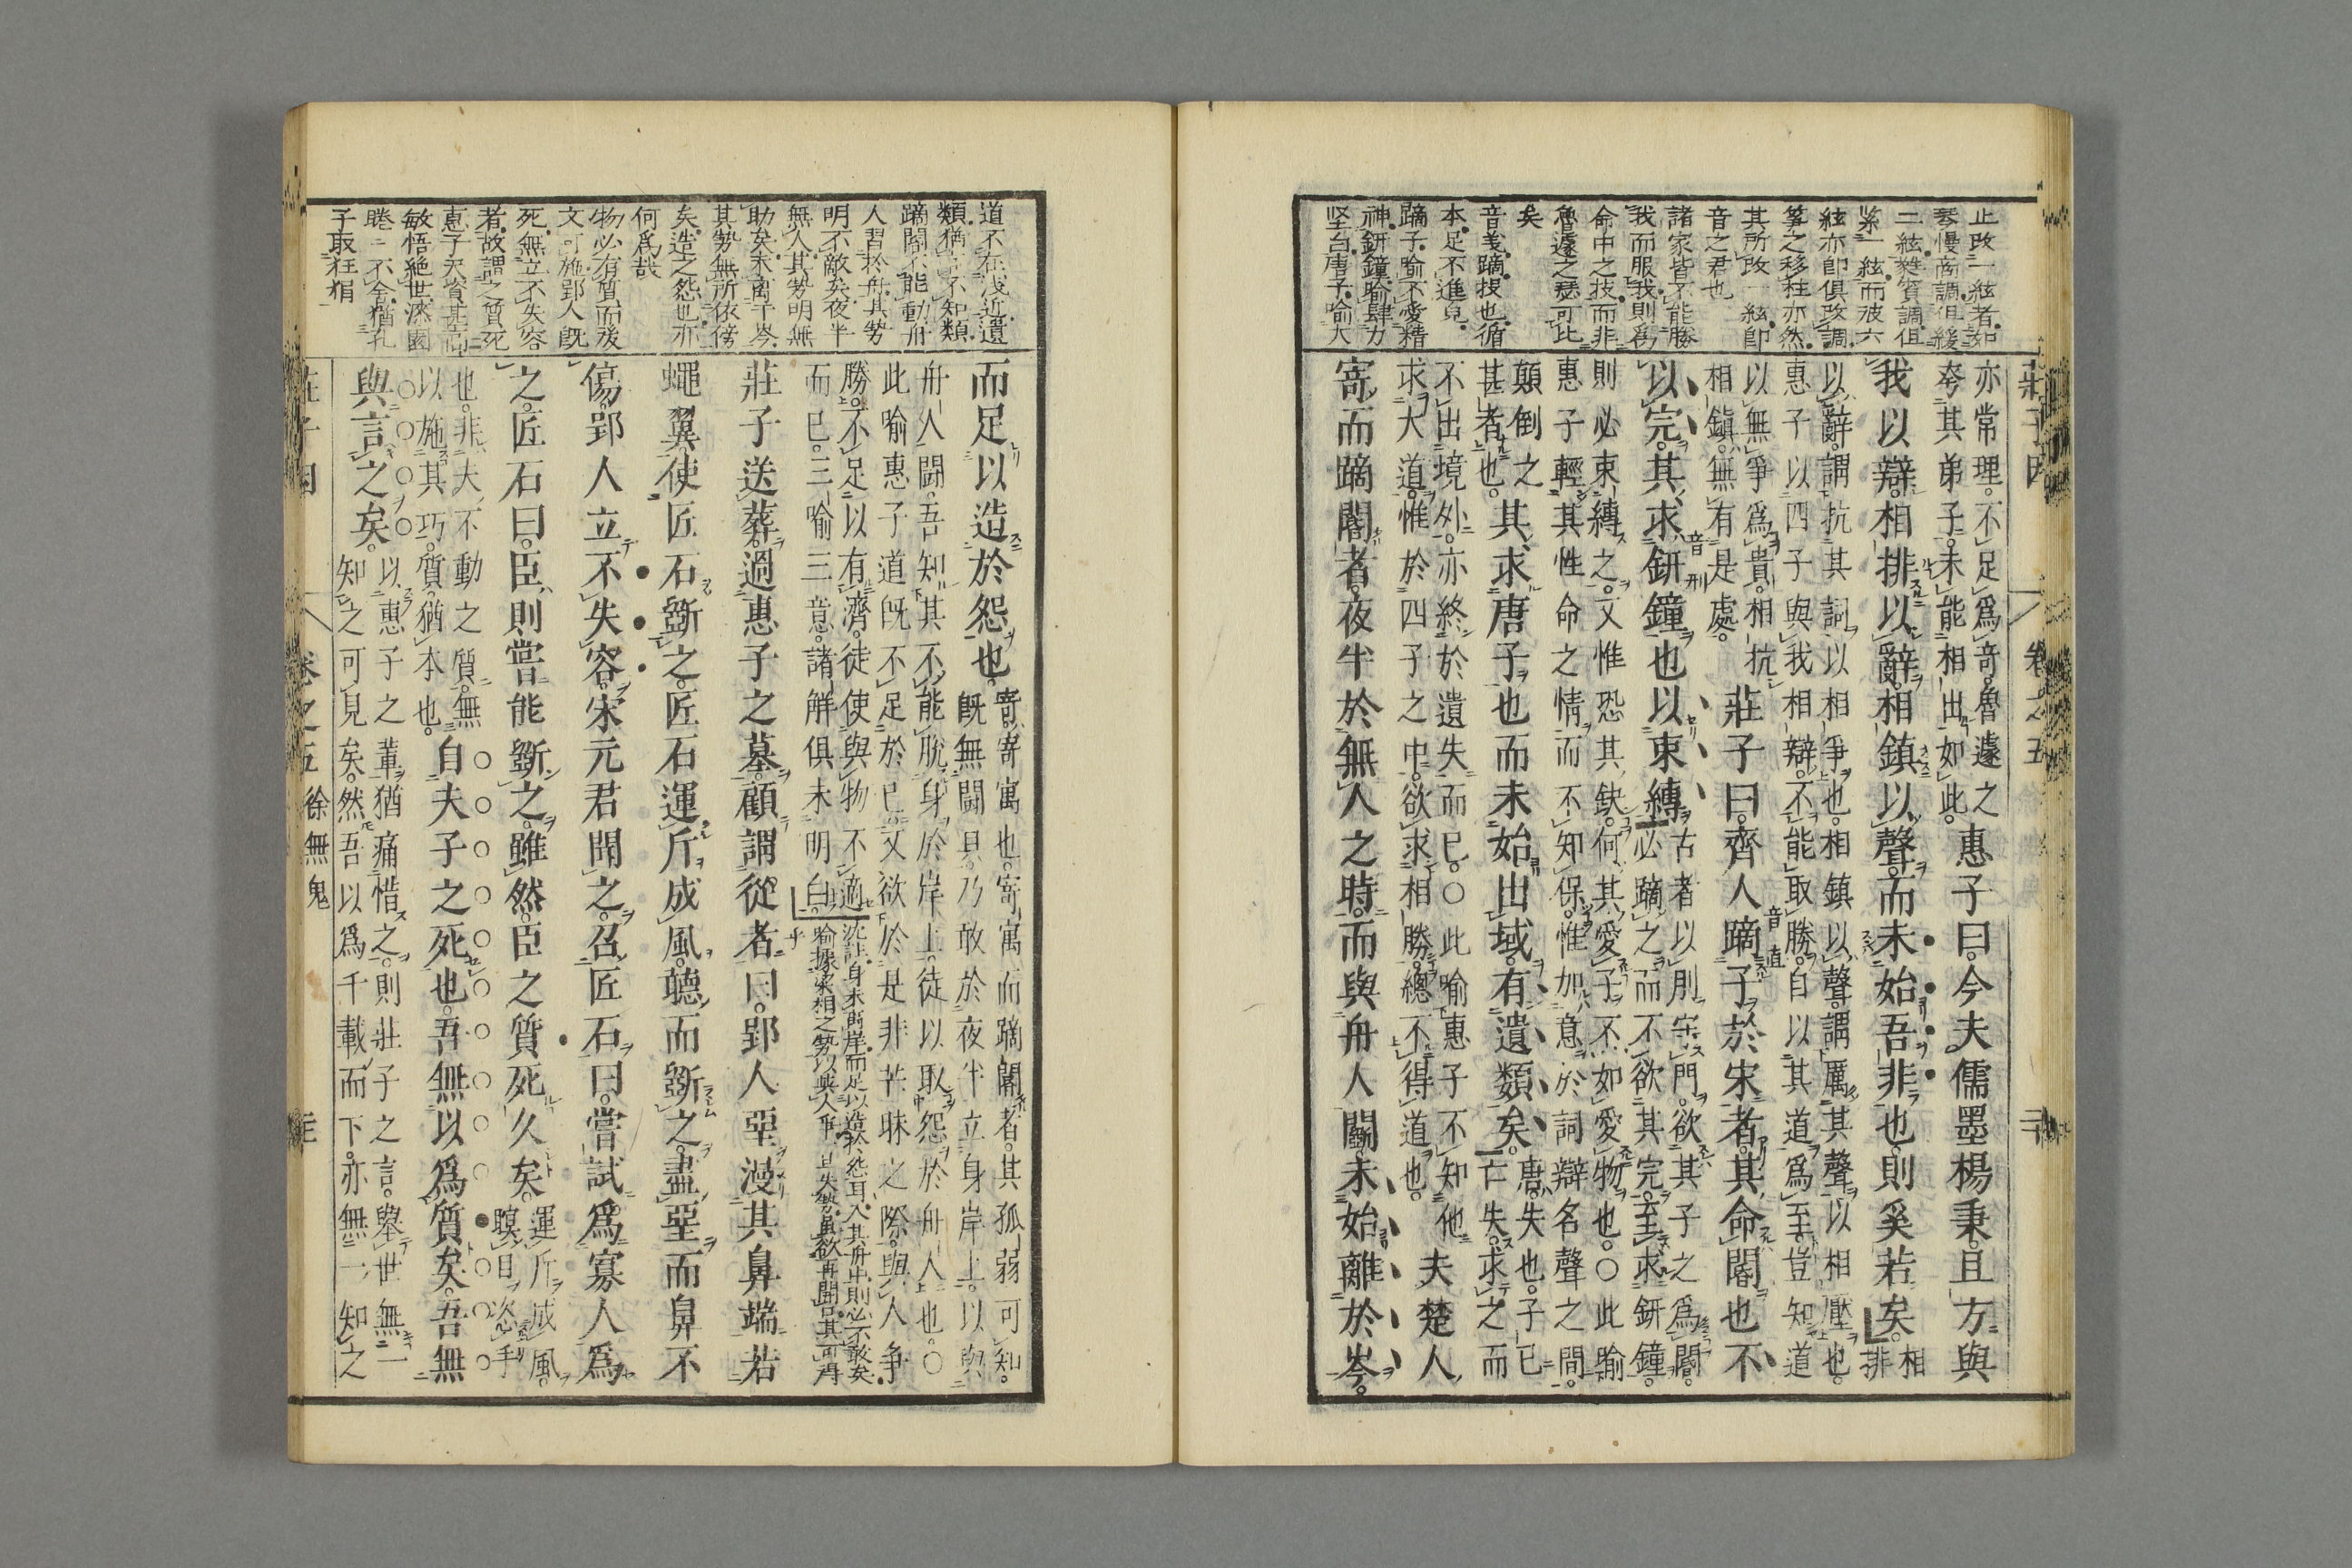 止改一絃者如
琴慢商調但緩
二絃蕤賓調但
緊一絃而彼六
絃亦卽俱改調
箏之移柱亦然
其所改一絃卽
音之君也
諸家皆不能勝
我而服我則爲
命中之技而非
魯遽之瑟可比
矣
音義蹢投也循
本足不進皃
蹢子喻不愛精
神鈃鐘喻肆力
堅白唐子喻大
莊子因
卷之五
亦常理不足爲奇魯遽之
卒其弟子未能相出如此
惠子曰今夫儒墨楊秉且方與
我以辯相排以辭相鎮以聲而未始吾非也則奚若矣
相
排
以辭謂抗其詞以相爭也相鎮以聲謂厲其聲以相壓也
惠子以四子與我相辯不能取勝自以其道爲至豈知道
以無爭爲貴相抗
相鎮無有是處
莊子曰齊人蹢子於宋者其命閽也不
音直
以完其求鈃鐘也以束縛
音刑
古者以刖守門欲其子之爲閽
必蹢之而不欲其完至求鈃鐘
則必束縛之又惟恐其缺何其愛子不如愛物也○此喻
惠子輕其性命之情而不知保惟加意於詞辯名聲之間
顛倒之
甚者也
其求唐子也而未始出域有遺類矣
唐失也子已
亡失求之而
不出境外亦終於遺失而已○此喻惠子不知他
求大道惟於四子之中欲求相勝總不得道也
夫楚人
寄而蹢閽者夜半於無人之時而與舟人鬬未始離於岑
道不在淺近遺
類猶言不知類
蹢閽不能動舟
人習於舟其勢
明不敵矣夜半
無人其勢明無
助矣未离于岑
其勢無所依傍
矣造之怨也亦
何爲哉
物必有質而後
文可施郢人旣
死無立不失容
者故謂之質死
惠子天資甚高
敏悟絶世漆園
睠睠不舍猶孔
子取狂狷
而足以造於怨也
寄寄寓也寄寓而蹢閽者其孤弱可知
旣無鬬具乃敢於夜半立身岸上以與
舟人鬬吾知其不能脫身於岸上徒以取怨於舟人也○
此喻惠子道旣不足於已又欲於是非芒昧之際與人爭
勝不足以有濟徒使與物不適
而已三喻三意諸解俱未明白
沈註身未離岸而足以造怨耳入其舟中則必不敢矣
喻據梁相之勢以與人爭
莊子送葬過惠子之墓顧謂從者曰郢人堊漫其鼻端若
蠅翼使匠石斵之匠石運斤成風聽而斵之盡堊而鼻不
傷郢人立不失容宋元君聞之召匠石曰嘗試爲寡人爲
之匠石曰臣則嘗能斵之雖然臣之質死久矣
運斤成風
瞑目恣手
也非夫不動之質無
以施其巧質猶本也
自夫子之死也吾無以爲質矣吾無
與言之矣
以惠子之輩猶痛惜之則莊子之言舉世無一
知之可見矣然吾以爲千載而下亦無一知之
卷之五
徐無鬼